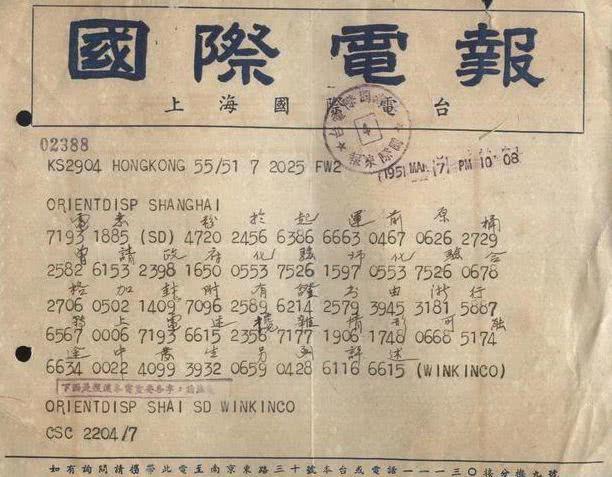 國際電報
上海國際電台
02388
KS2904 HONGKONG 55/51 7 2025 FW2
4
1951 MAR 7 PM 10 08
ORIENTDISP SHANGHAI
電悉 粉於起運前原桶
7193 1885 (SD) 4720 2456 6386 6663 0467 0626 2729
曾請政府化驗師化驗合
2582 6153 2398 1650 0553 7526 1597 0553 7526 0678
格加封附有證書由 行
2706 0502 1409 7096 2589 6214 2579 3945 3181 5887
上電述攙雜情形可能
6567 0006 7193 6615 2356 7177 1906 1748 0668 5174
途中發生另函詳述
6634 0022 4099 3932 0659 0428 6116 6615 (WINKINCO)
ORIENTDISP SHAI SD WINKINCO
CSC 2204/7
如有詢問請攜帶此電至南京東路三十號本台或電話一一一三〇接分機九號